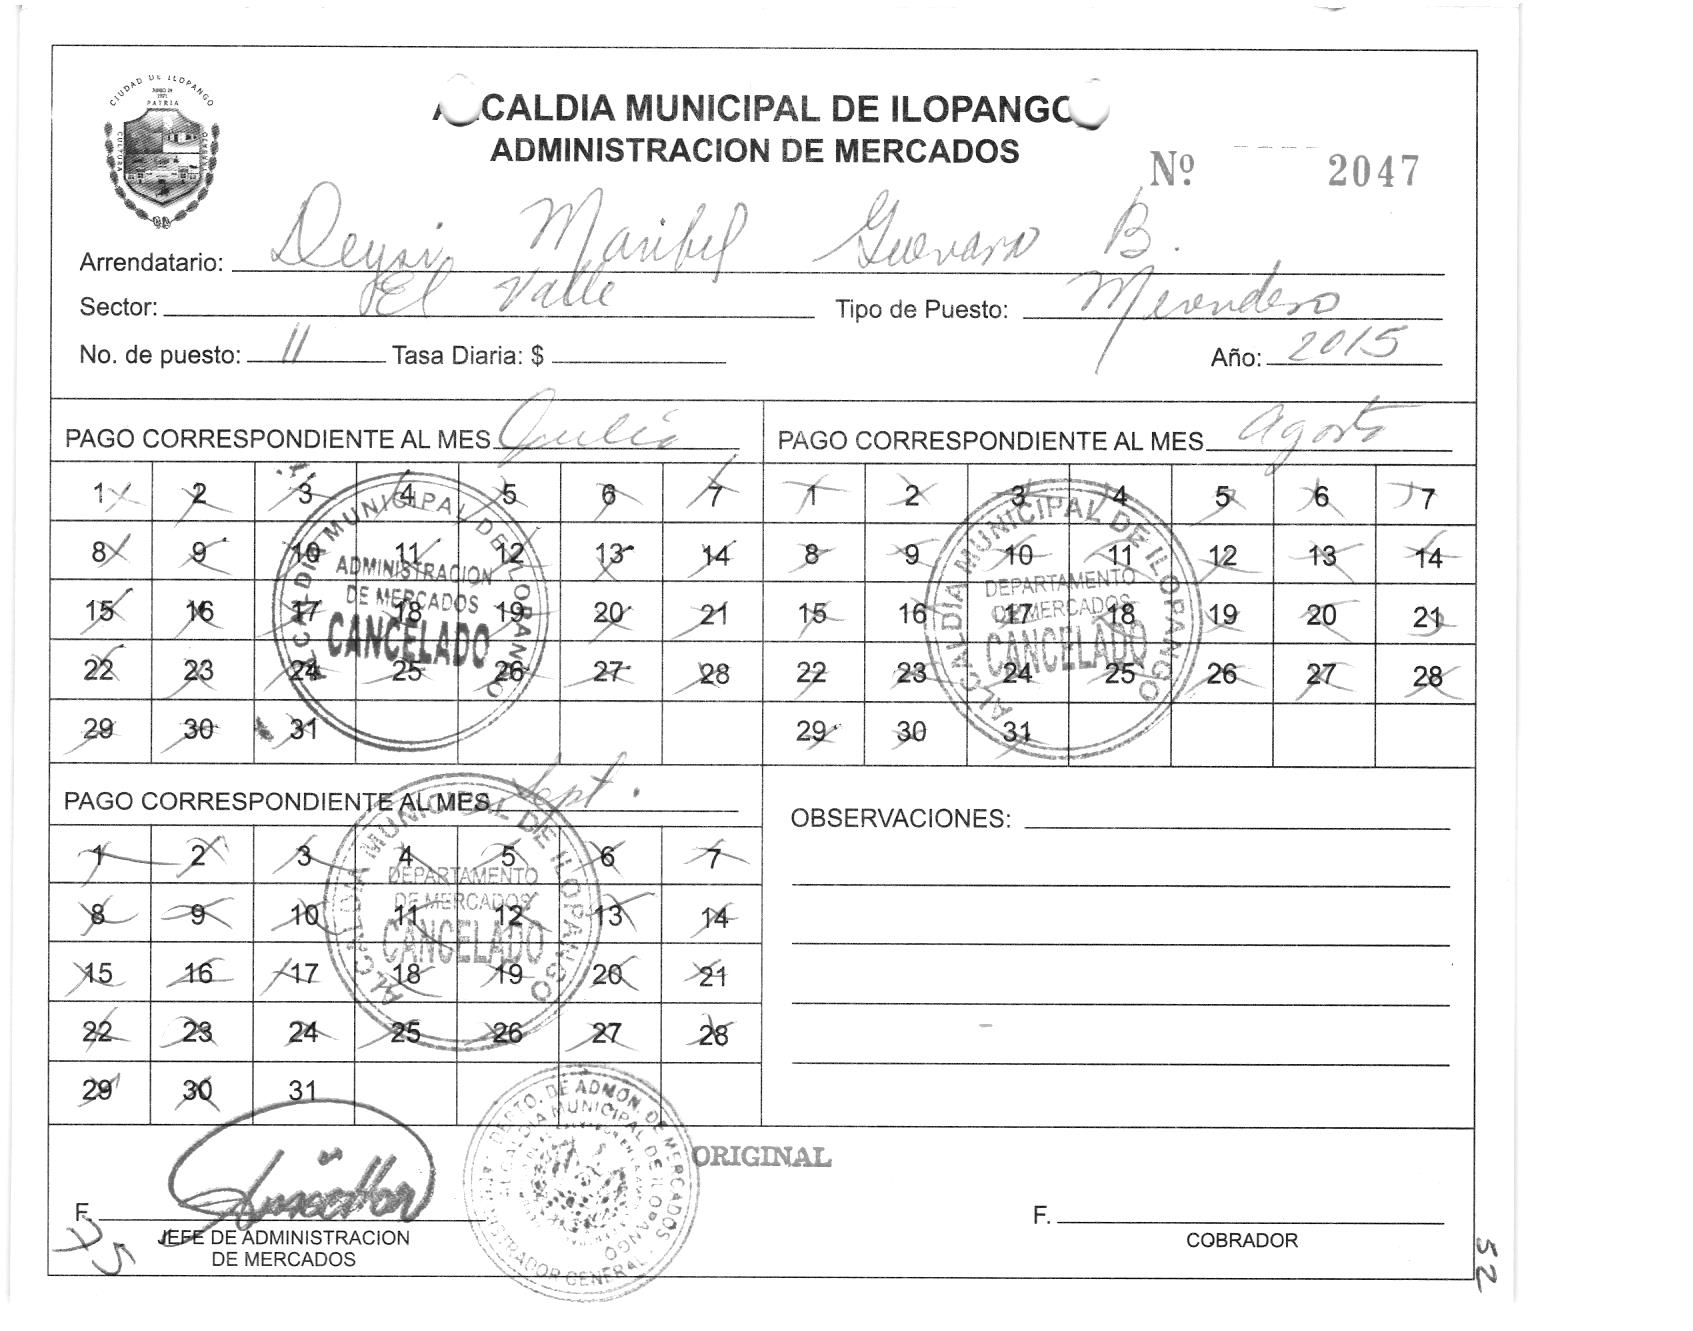 CIUDAD DE ILOPANGO
PATRIA
CULTURA
ALCALDIA MUNICIPAL DE ILOPANGO
ADMINISTRACION DE MERCADOS
Nº 2047
Arrendatario: Deysi Maribel Guevara B.
Sector: El Valle Tipo de Puesto: Merendero
No. de puesto: 11 Tasa Diaria: $ Año: 2015
PAGO CORRESPONDIENTE AL MES Julio
1 2 3 4 5 6 7
8 9 10 11 12 13 14
15 16 17 18 19 20 21
22 23 24 25 26 27 28
29 30 31
ALCALDIA MUNICIPAL DE ILOPANGO
ADMINISTRACION
DE MERCADOS
CANCELADO
PAGO CORRESPONDIENTE AL MES Agosto
1 2 3 4 5 6 7
8 9 10 11 12 13 14
15 16 17 18 19 20 21
22 23 24 25 26 27 28
29 30 31
ALCALDIA MUNICIPAL DE ILOPANGO
DEPARTAMENTO
DE MERCADOS
CANCELADO
PAGO CORRESPONDIENTE AL MES Sept.
1 2 3 4 5 6 7
8 9 10 11 12 13 14
15 16 17 18 19 20 21
22 23 24 25 26 27 28
29 30 31
ALCALDIA MUNICIPAL DE ILOPANGO
DEPARTAMENTO
DE MERCADOS
CANCELADO
OBSERVACIONES:
DEPTO. DE ADMON. DE MERCADOS
ALCALDIA MUNICIPAL DE ILOPANGO
ADMINISTRADOR GENERAL
ORIGINAL
F.
JEFE DE ADMINISTRACION
DE MERCADOS
F.
COBRADOR
52